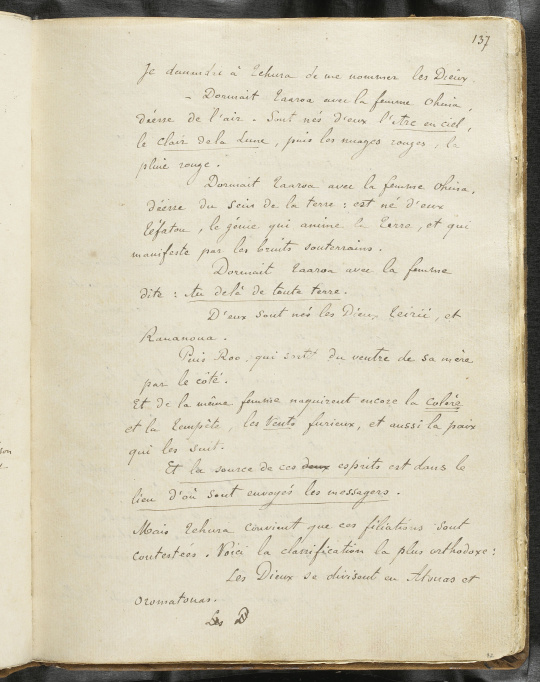 137
Je demandai à Tehura de me nommer les Dieux
- Dormait Taaroa avec la femme Ohina,
déesse de l'air. Sont nés d'eux l'Arc en ciel,
le clair de la Lune, puis les nuages rouges, la
pluie rouge.
Dormait Taaroa avec la femme Ohina,
déesse du sein de la terre : est né d'eux
Téfatou, le génie qui anime la terre, et qui
manifeste par les bruits souterrains.
Dormait Taaroa avec la femme
dite : Au delà de toute terre.
D'eux sont nés les Dieux Teirii, et
Rananoua.
Puis Roo, qui sortit du ventre de sa mère
par le côté.
Et de la même femme naquirent encore la Colère
et la Tempête, les Vents furieux, et aussi la paix
qui les suit.
Et la source de ces deux esprits est dans le
lieu d'où sont envoyés les messagers.
Mais Tehura convient que ces filiations sont
contestées. Voici la classification la plus orthodoxe :
Les Dieux se divisent en Atouas et
oromatouas.
Les D